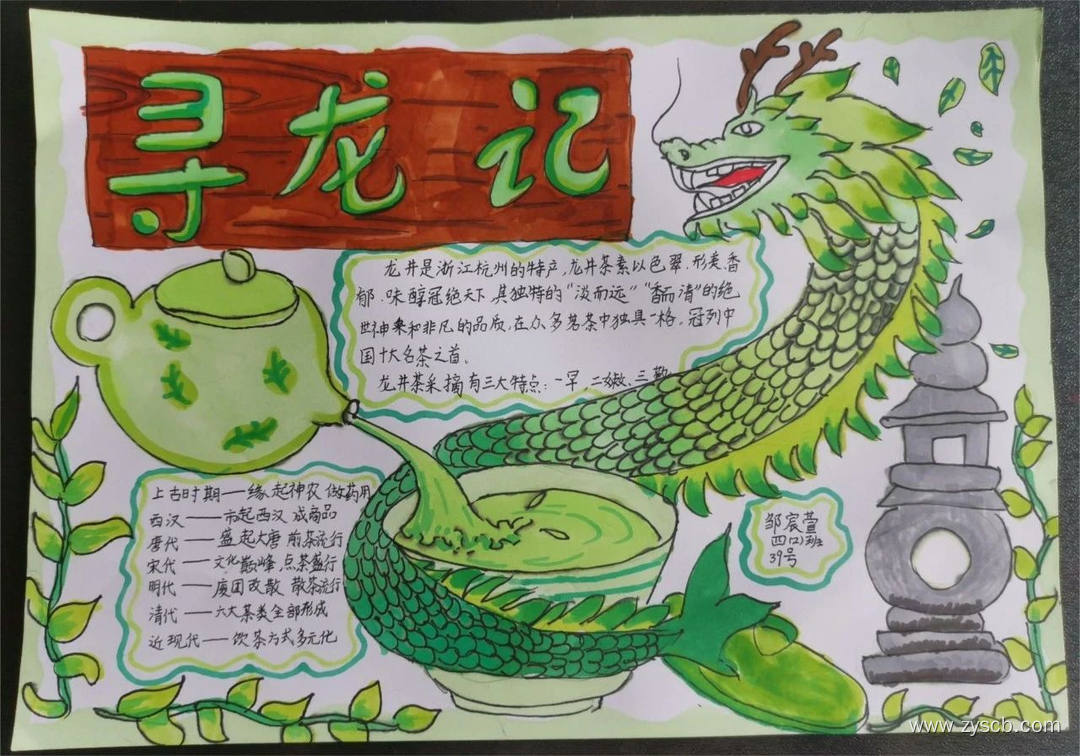 寻龙记
龙井是浙江杭州的特产,龙井茶素以色翠、形美、香
郁、味醇冠绝天下,其独特的“淡而远”“香而清”的绝
世神采和非凡的品质,在众多茗茶中独具一格,冠列中
国十大名茶之首。
龙井茶采摘有三大特点:一早,二嫩,三勤
上古时期——缘起神农 做药用
西汉——市起西汉 成商品
唐代——盛起大唐 煎茶流行
宋代——文化巅峰,点茶盛行
明代——废团改散 散茶流行
清代——六大茶类全部形成
近现代——饮茶方式多元化
邹宸萱
四(2)班
39号
www.zyscb.com